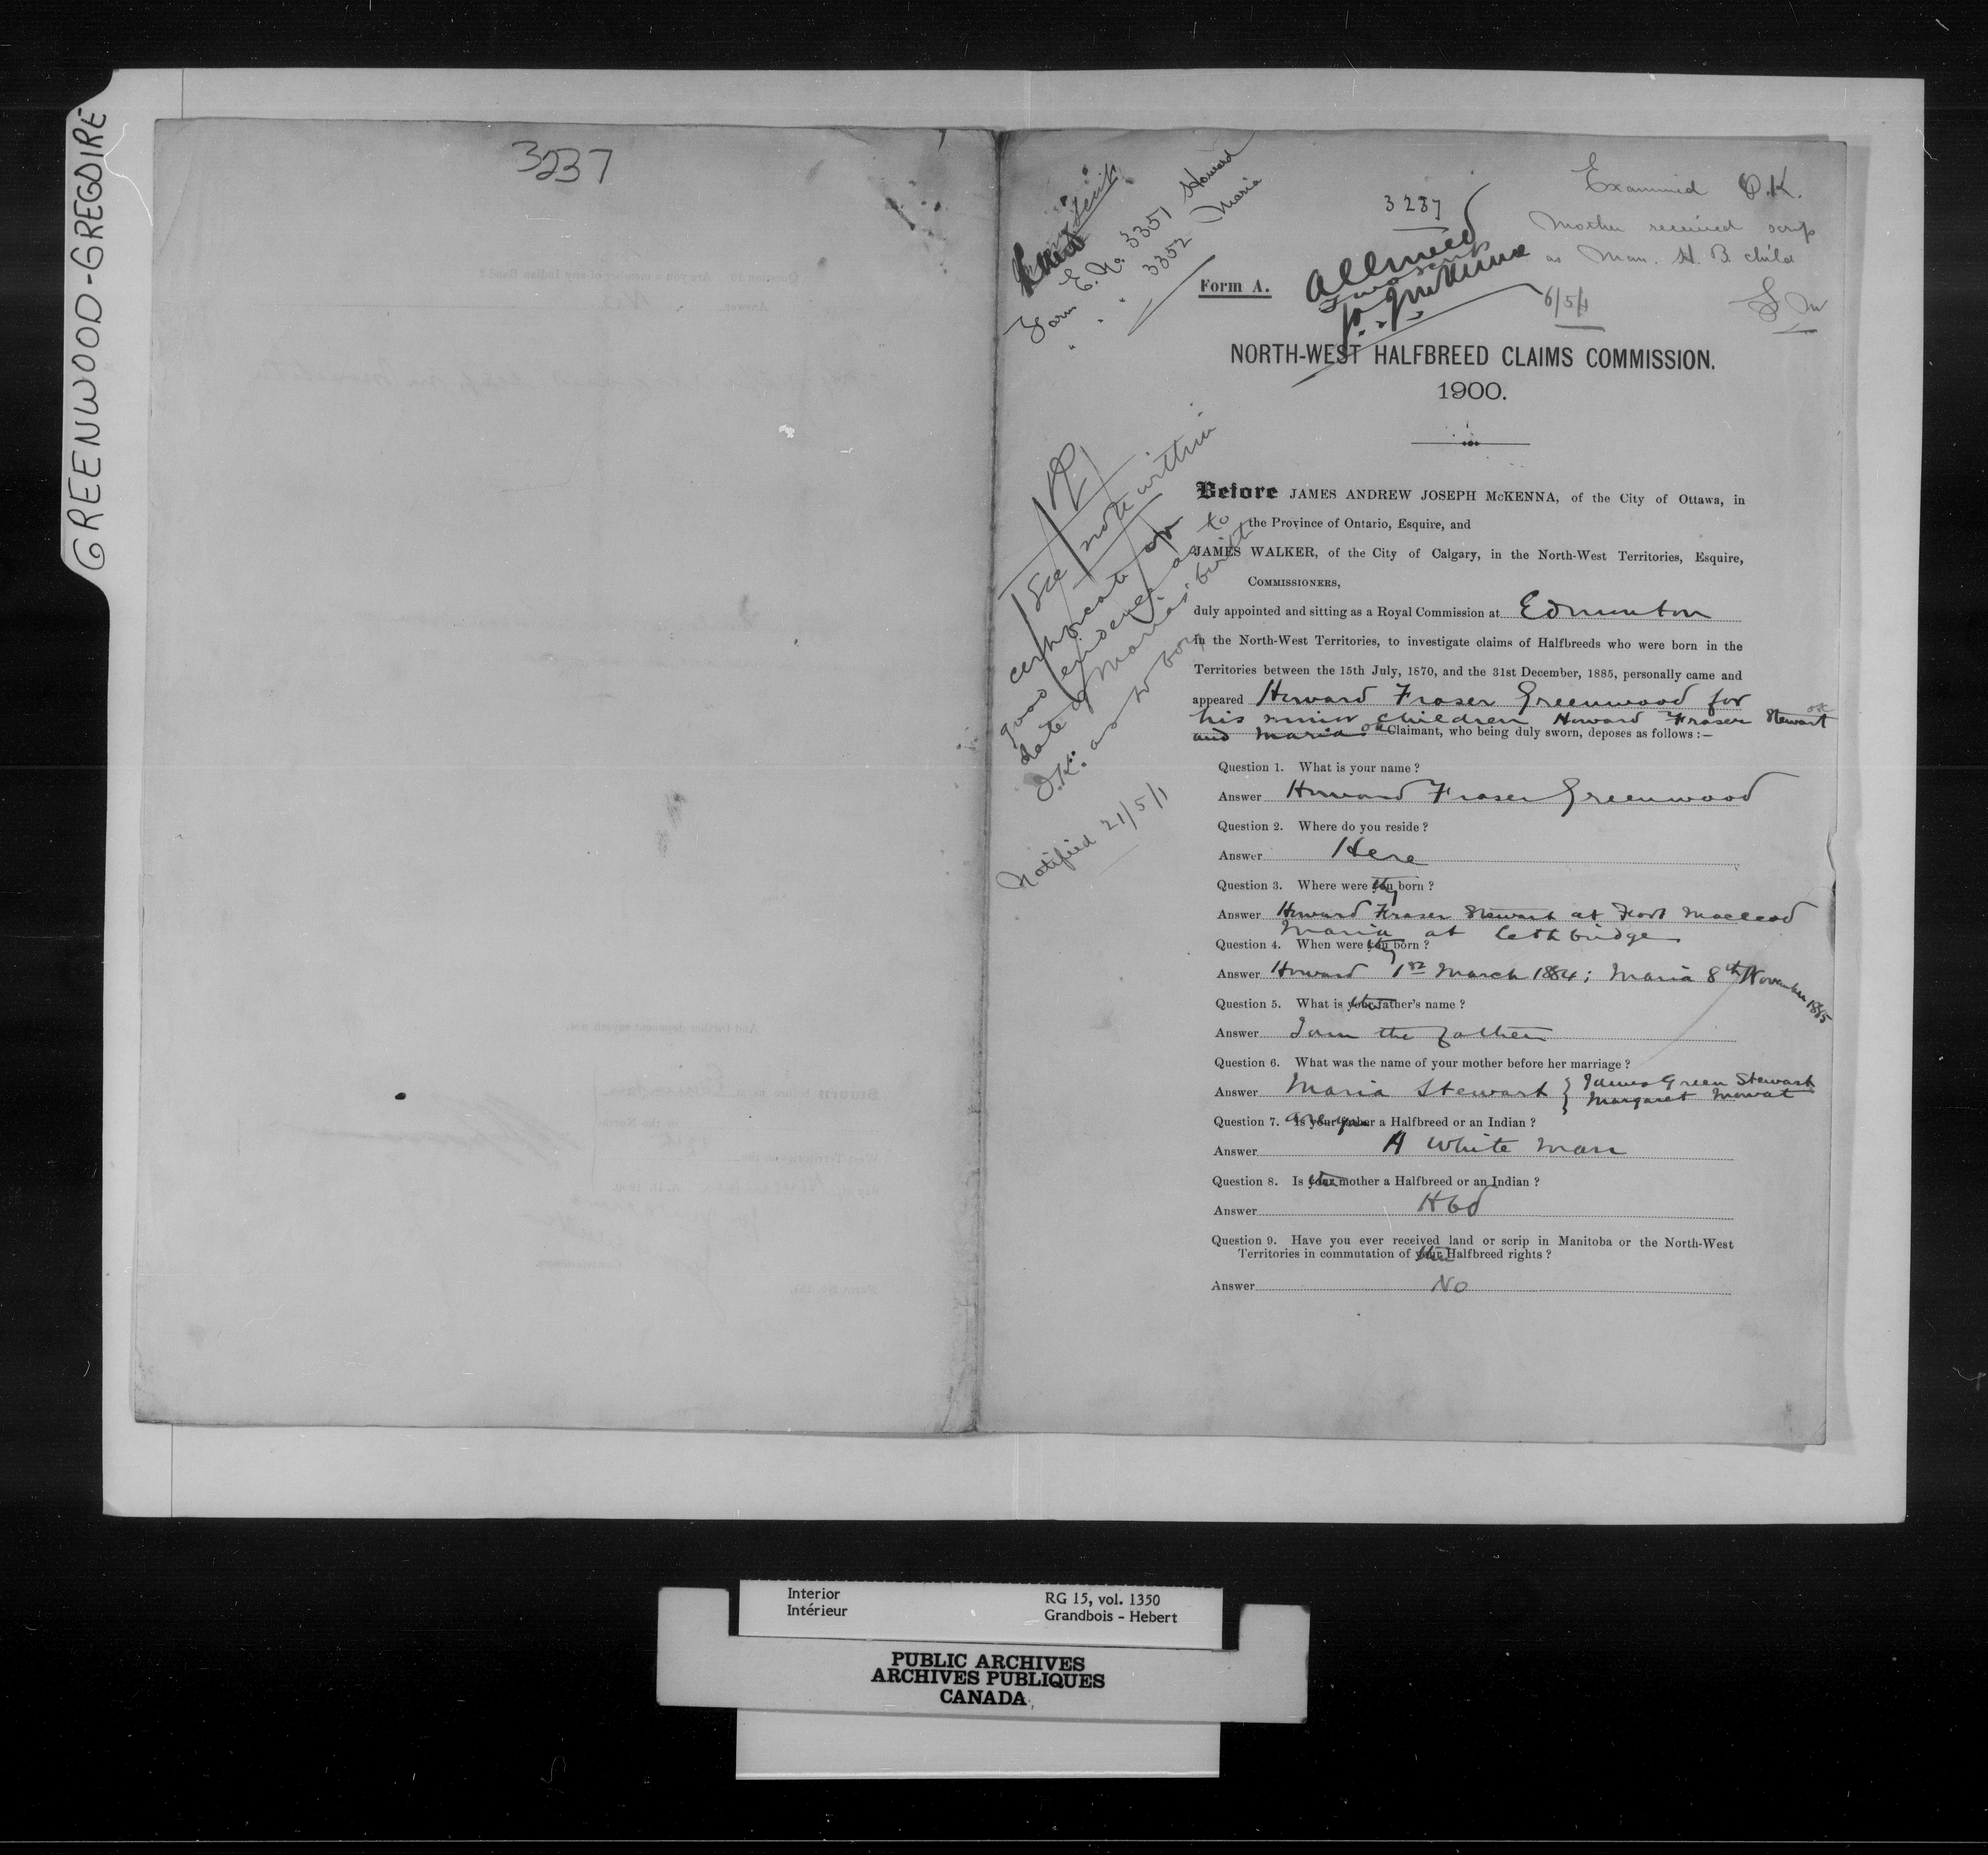 GREENWOOD-GREGOIRE
3237
Form E. No. 3351 Howard
" " 3352 Maria
3237
Allowed
Two scrip
J.A.J. McKenna
6/5/1
Examined O.K.
Mother received scrip
as Man. H. B. child
Form A.
NORTH-WEST HALFBREED CLAIMS COMMISSION.
1900.
See note within
certificate or
good evidence as to
date of Maria's birth
O.K. as to
Notified 21/5/1
Before JAMES ANDREW JOSEPH McKENNA, of the City of Ottawa, in
the Province of Ontario, Esquire, and
JAMES WALKER, of the City of Calgary, in the North-West Territories, Esquire,
COMMISSIONERS,
duly appointed and sitting as a Royal Commission at Edmonton
in the North-West Territories, to investigate claims of Halfbreeds who were born in the
Territories between the 15th July, 1870, and the 31st December, 1885, personally came and
appeared Howard Fraser Greenwood for
his minor children Howard Fraser Stewart ok
and Maria ok Claimant, who being duly sworn, deposes as follows :—
Question 1. What is your name ?
Answer Howard Fraser Greenwood
Question 2. Where do you reside ?
Answer Here
Question 3. Where were they born ?
Answer Howard Fraser Stewart at Fort Macleod
Maria at Lethbridge
Question 4. When were they born ?
Answer Howard 1st March 1884; Maria 8th November 1885
Question 5. What is their father's name ?
Answer I am the father
Question 6. What was the name of your mother before her marriage ?
Answer Maria Stewart { James Green Stewart
Margaret Mowat
Question 7. Are you a Halfbreed or an Indian ?
Answer A White man
Question 8. Is their mother a Halfbreed or an Indian ?
Answer Hbd
Question 9. Have you ever received land or scrip in Manitoba or the North-West
Territories in commutation of their Halfbreed rights ?
Answer No
Interior
Intérieur
RG 15, vol. 1350
Grandbois - Hebert
PUBLIC ARCHIVES
ARCHIVES PUBLIQUES
CANADA